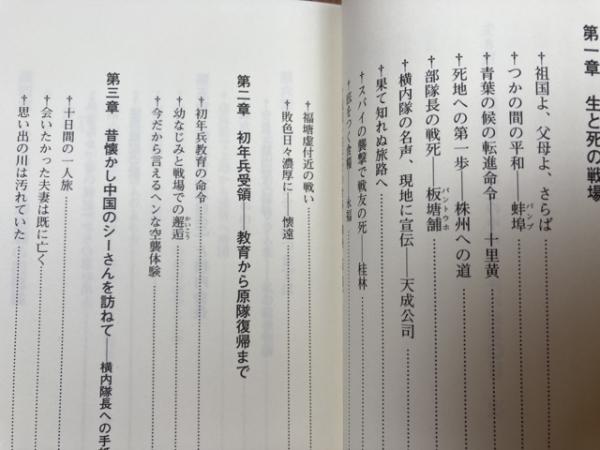 第一章 生と死の戦場
†祖国よ、父母よ、さらば
†つかの間の平和――蚌埠
バンプ
†青葉の候の転進命令――十里黄
†死地への第一歩――株州への道
†部隊長の戦死――板塘舗
パントウホ
†横内隊の名声、現地に宣伝――天成公司
†果て知れぬ旅路へ
†スパイの襲撃で戦友の死――桂林
†福塘虚付近の戦い
†敗色日々濃厚に――懐遠
第二章 初年兵受領――教育から原隊復帰まで
†初年兵教育の命令
†幼なじみと戦場での邂逅
かいこう
†今だから言えるヘンな空襲体験
第三章 昔懐かし中国のシーさんを訪ねて――横内隊長への手紙
†十日間の一人旅
†会いたかった夫妻は既に亡く
†思い出の川は汚れていた